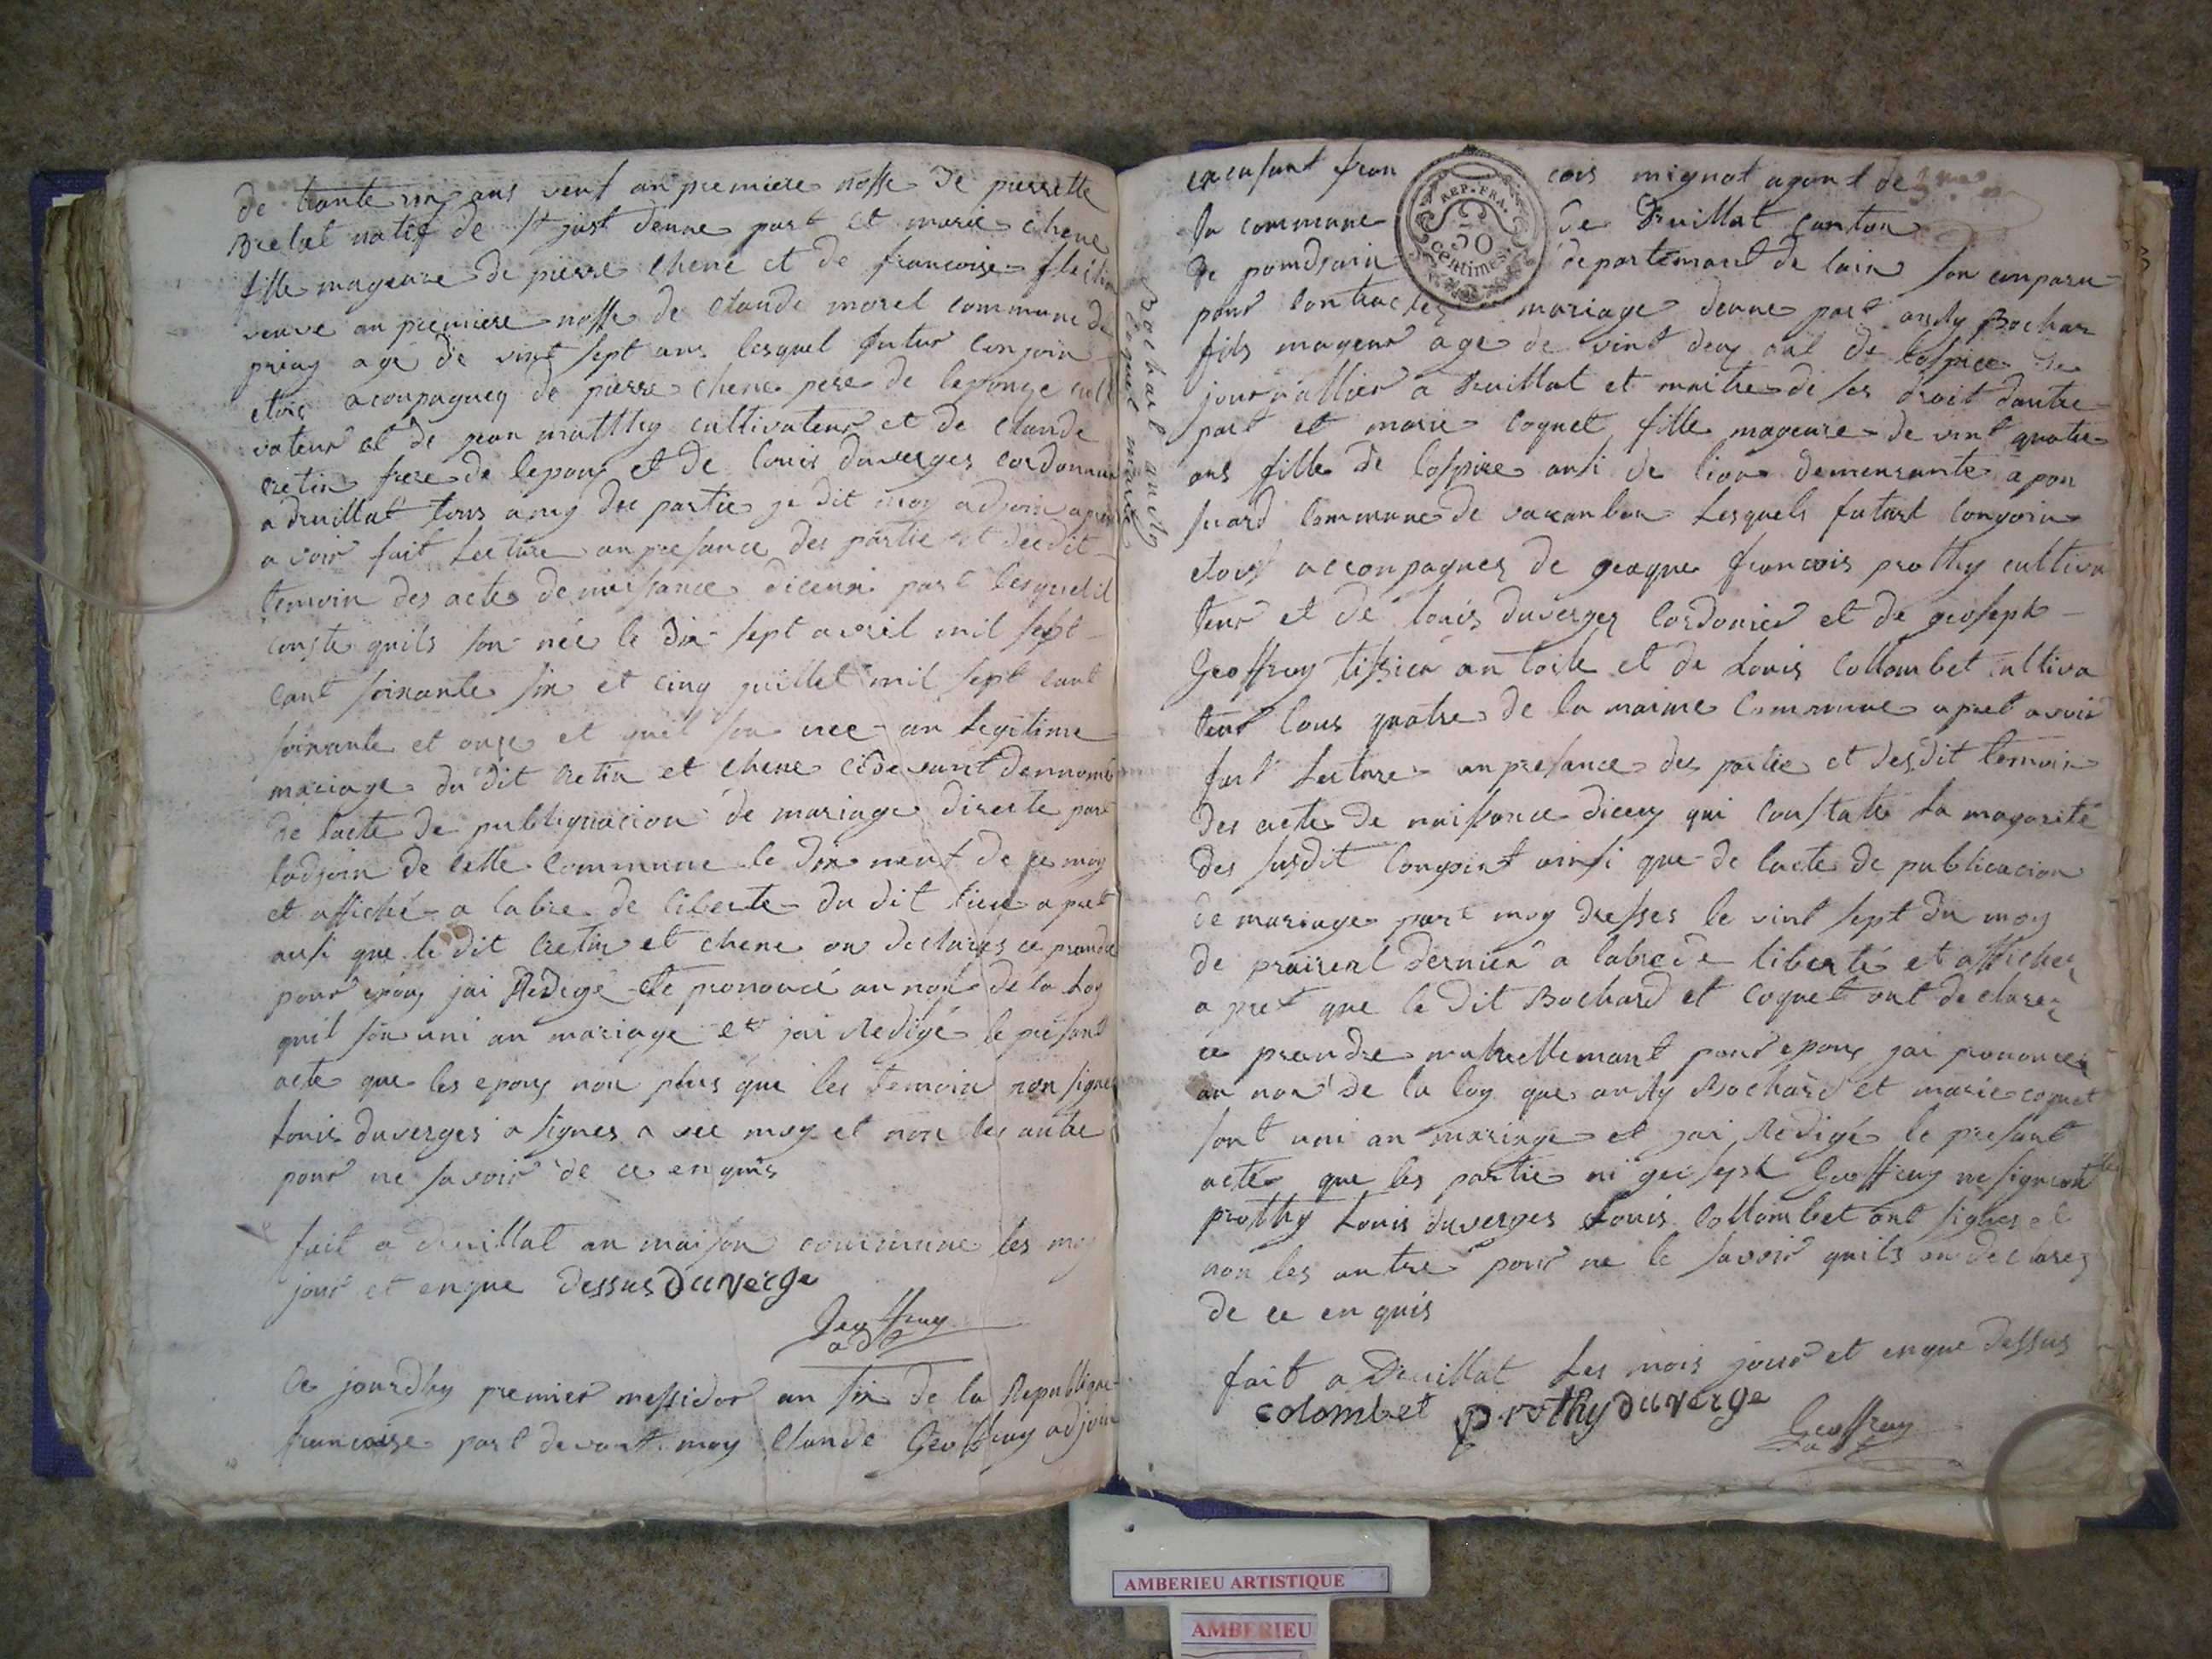 de trante un ans veuf an premiere nosse de pierrette
Brelat natif de st just deune part et marie chene
fille mageure de pierre chene et de francoise
veuve an premiere nosse de Claude morel commune de
priay age de vint sept ans lesquel futur conjoin
etois acompagneq de pierre chene pere de leponge cult
vateur et de jean matthy cultivateur et de Claude
cretin frere de lepouq et de louis duverges cordonnier
a druillat tous amy des partie je dit moy adjoin apres
avoir fait Lecture an presance des partie et desdit
temoin des acte de naissance diceux part lesquel il
conste quils son née le dix sept avril mil sept
cant soixante six et cinq juillet mil sept cant
soixante et onze et quil son nee an legitime
mariage du dit cretin et chene cidevant dennomé
de lacte de publiquacion de mariage direste part
ladjoin de cette commune le dix neuf de ce moy
et affiché a labre de liberte du dit lieu apret
ausi que le dit cretin et chene on declares ce prandre
pour epouq jai Redigé et pronancé au nom de la Loy
quil son uni an mariage et jai Redigé le presant
acte que les epouq non plus que les temoin non signe
Louis duverges a signes avec moy et non les autre
pour ne savoir de ce enquis
fait a druillat an maison commune les moy
jour et enque dessus duverge
Geoffray
adt
Ce jourdhy premier messidor an six de la Republique
francoise part devant moy Claude Geoffray adjoin
Bochard andly
Coquet marie
en casant fran cois mignot agant de
la commune de Druillat canton
de pomdrain departemant de lain son conparu
pour contracter mariage deune part andly Bochar
fids mageur age de vint deux ant de lospice de
journallier a Druillat et maitre de ses droit dautre
part et marie coquet fille mageure de vint quatre
ans fille de lospice ausi de lion demeurante a pon
suard commune de varanbon Lesquels futurt conjoin
etois acconpagnes de geaque francois prothy cultiva
teur et de louis duverges cordonier et de geoseph
Geoffray tissier an toile et de Louis Collombet cultiva
teur tous quatre de la maime commune apret avoir
fait Lecture an presance des partie et desdit temoin
des acte de naissance diceux qui constate La magorité
des susdit conjoint ainsi que de lacte de publicacion
de mariage part moy dresses le vint sept du moy
de prairent dernier a labre de liberté et affiches
apret que le dit Bochard et coquet ont declares
ce prandre mutuellemant pour epouq jai prononces
au non de la loy que andly Bochard et marie coquet
sont uni an mariage et jai Redigé le presant
acte que les partie ni geoseph Geoffray ne signeront
prothy Louis duverges Louis Collombet ont signes et
non les autre pour ne le savoir quils on declares
de ce enquis
fait a Druillat Les mois jour et enque dessus
colombet prothy duverge
Geoffray
adt
REP. FRA.
50
centimes
AMBERIEU ARTISTIQUE
AMBERIEU